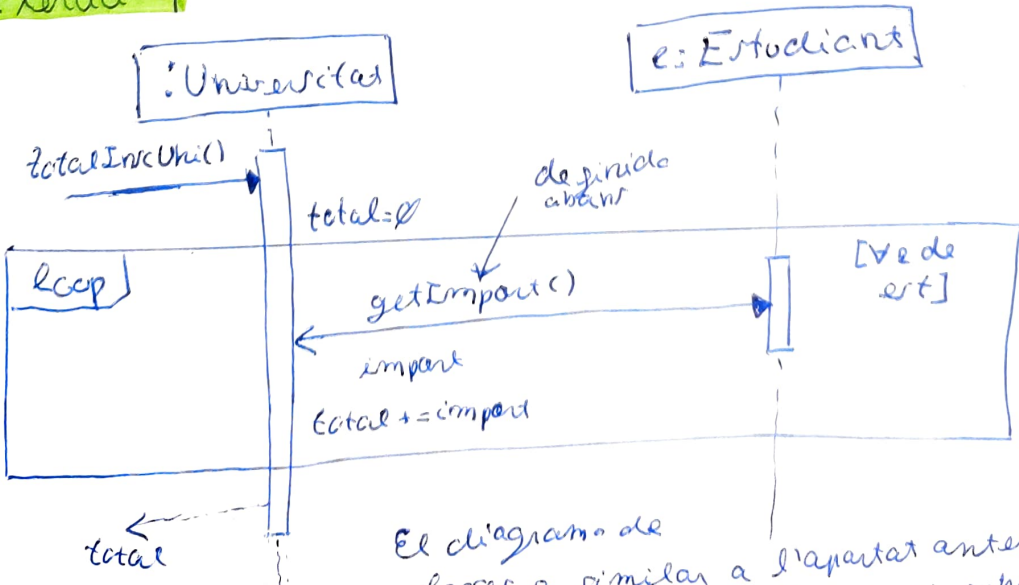 :Universitat
e: Estudiant
totalInscUni()
definido
abans
total=0
loop
[∀e de
est]
getImport()
import
total += import
total
El diagrama de
similar a l'apartat ante